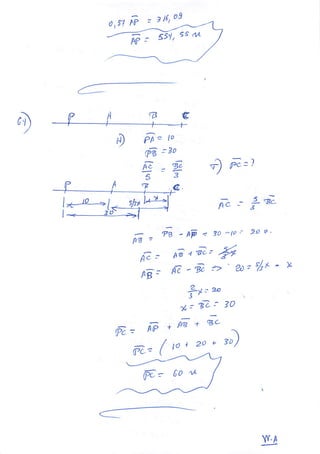 0,57 AP = 316,09
AP = 554,55 u
64)
P A B C
H) PA = 10
PB = 30
AC/5 = BC/3 T) PC = ?
P A B C
10 5/3x x
30
AC = 5/3 BC
AB = PB - AP = 30 - 10 = 20 u.
AC = AB + BC = 5/3x
AB = AC - BC => 20 = 5/3x - x
2/3 x = 20
x = BC = 30
PC = AP + AB + BC
PC = (10 + 20 + 30)
PC = 60 u
W.A